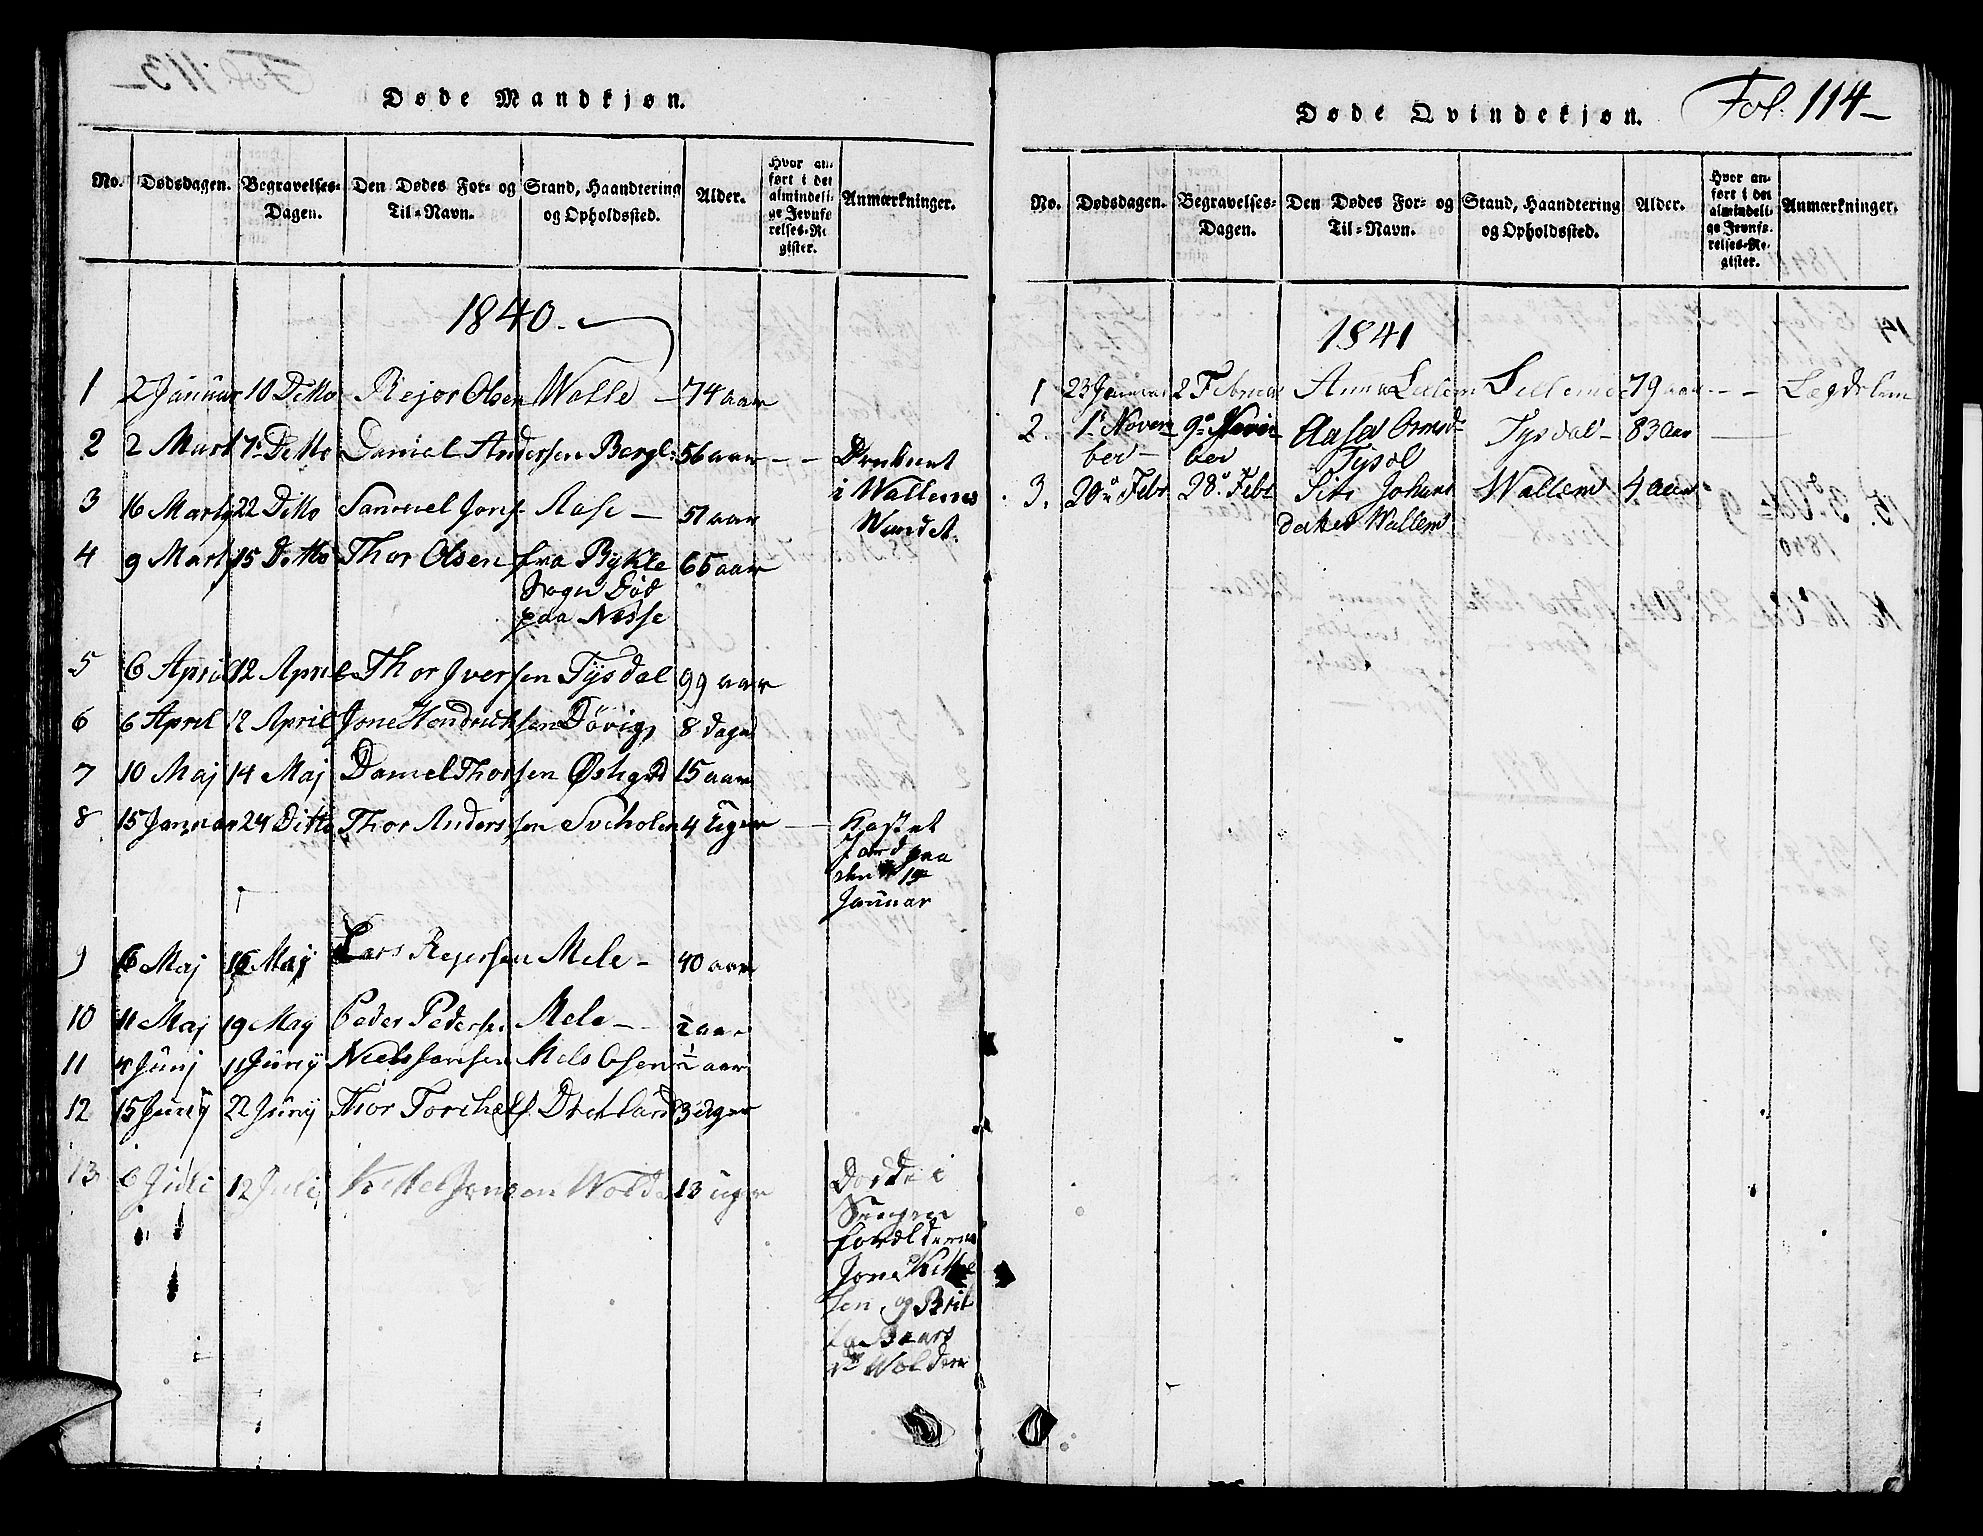 Døde Mandkjøn.
No. Dødsdagen. Begravelses-Dagen. Den Dødes For- og Til-Navn. Stand, Haandtering og Opholdssted. Alder. Hvor anført i det almindelige Jevnførelses-Register. Anmærkninger.
1840.
1 2 Januar 10 Ditto Rejor Olsen Walle 74 aar
2 2 Marts 7 Ditto Daniel Andersen Bergl 56 aar - - Druknet
i Wallems
Wandet.
3 16 Marts 22 Ditto Samuel Jons Aase — 51 aar
4 9 Marts 15 Ditto Thor Olsen fra Bykle 65 aar
Sogn Død
paa Nesse
5 6 April 12 April Thor Iversen Tysdal 99 aar
6 6 April 12 April Jone Hendriksen Døvig 8 dage
7 10 Maj 14 Maj Daniel Thorsen 15 aar
8 15 Januar 24 Ditto Thor Anderssen Sviholen 4 Uger — Kastet
Jord paa
den 19
Januar
9 6 Maj 16 Maj Lars Rejersen Mele - 40 aar
10 11 Maj 19 Maj Peder Pedersen Mele — ½ aar
11 4 Junj 11 Junij Niels Jansen Mels Osen ½ aar
12 15 Junij 22 Junij Thor Torchels 3 Uger
13 6 Juli 12 Julij Kittel Jonsen Wolde 13 Uger
Døde i
Sengen
forældrene
Jone Kittel
sen og Brit
Baars
Wolden
Døde Qvindekjøn. Fol. 114—
No. Dødsdagen. Begravelses-Dagen. Den Dødes For- og Til-Navn. Stand, Haandtering og Opholdssted. Alder. Hvor anført i det almindelige Jevnførelses-Register. Anmærkninger.
1841
1 23 Januar 2 Februar Anna Lelem 79 aar - - Legdelem
2. 1 Novem 9 Novem Aasa Tysdal - 83 Aar
ber — ber Tysdl
3. 20 Febr 28 Febr Siti Johans Wallem 4 aar
dater Wallem